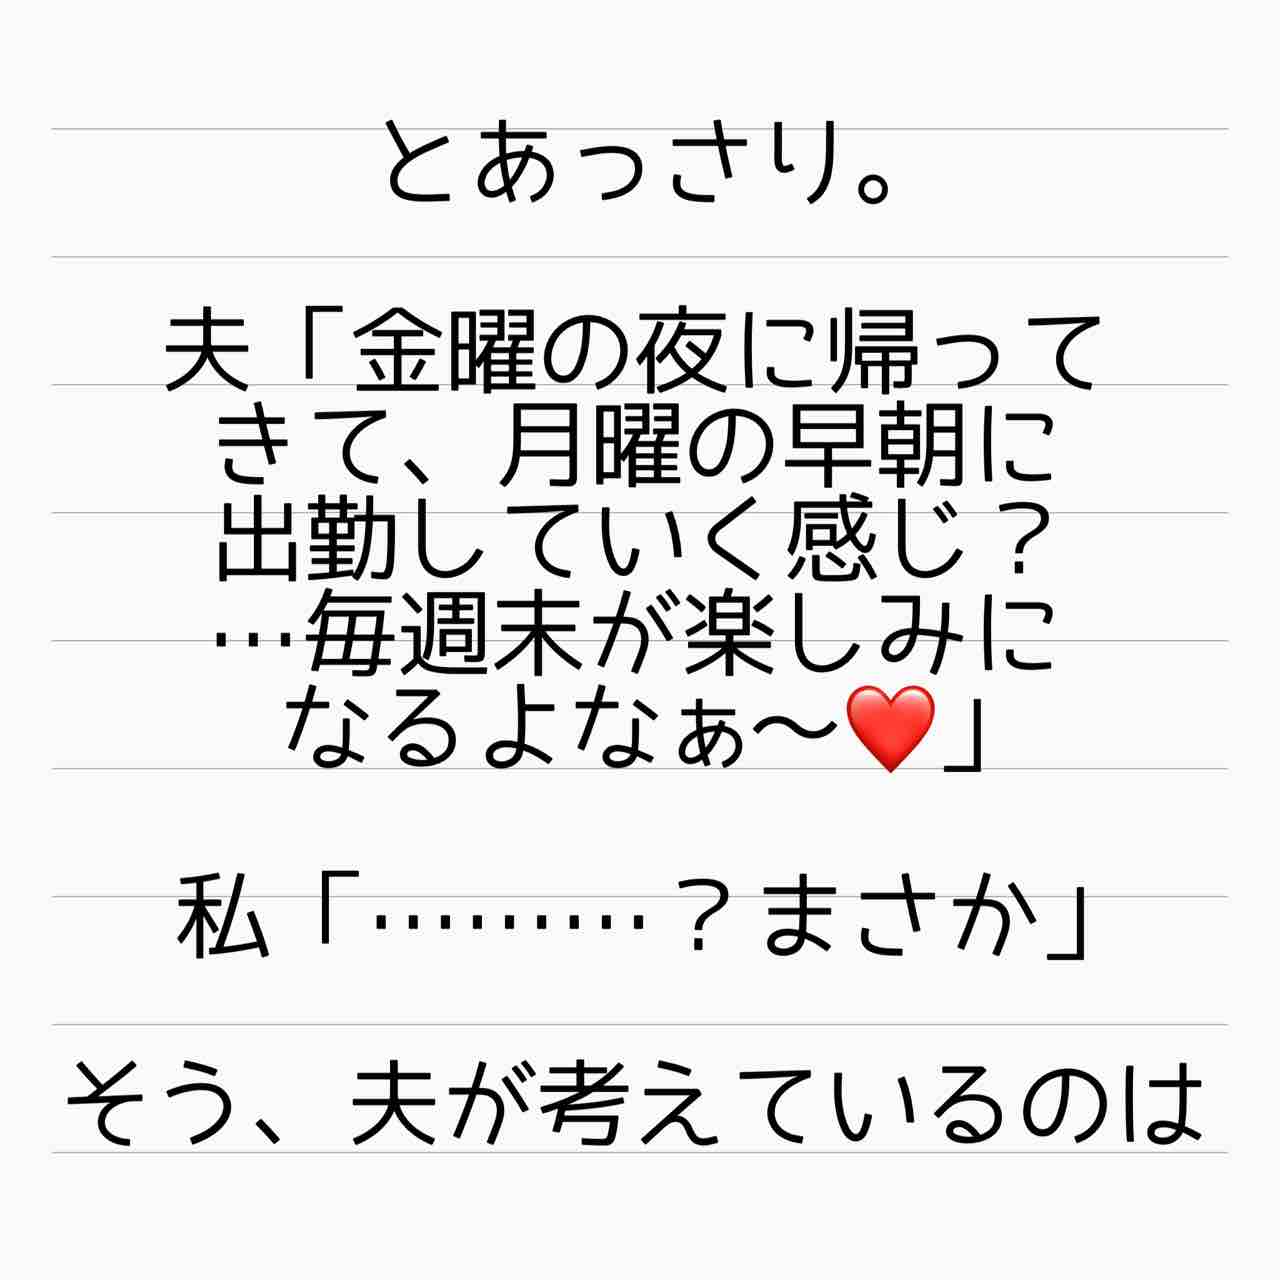 とあっさり。
夫「金曜の夜に帰って
きて、月曜の早朝に
出勤していく感じ？
…毎週末が楽しみに
なるよなぁ〜❤️」
私「………？まさか」
そう、夫が考えているのは